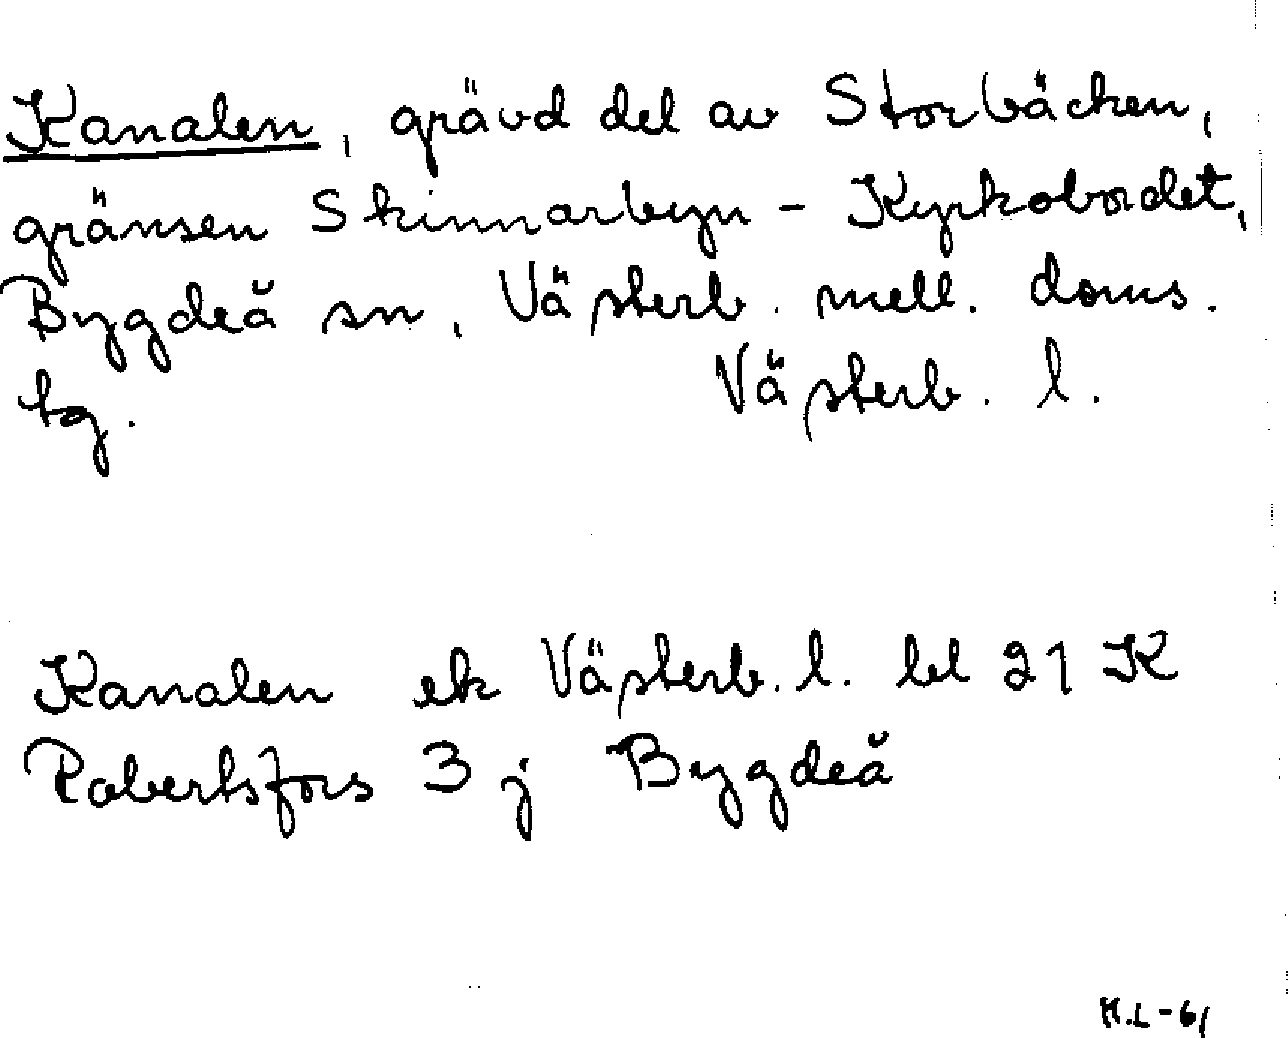 Kanalen, grävd del av Storbäcken,
gränsen Skinnarbyn - Kyrkobordet,
Bygdeå sn, Västerb. mell. doms.
tg. Västerb. l.
Kanalen ek Västerb. l. bl 21 K
Robertsfors 3 j Bygdeå
H.L-61